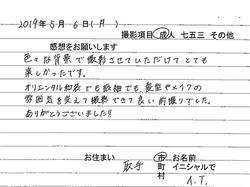 2019年5月6日(月)
撮影項目 成人 七五三 その他
感想をお願いします
色々な背景で撮影させていただけてとても
楽しかったです。
オリエンタル和装でも振袖でも、髪型やメイクの
雰囲気を変えて撮影できて良い前撮りでした。
ありがとうございました!!
お住まい 取手 市町村 お名前 イニシャルで
A.T.